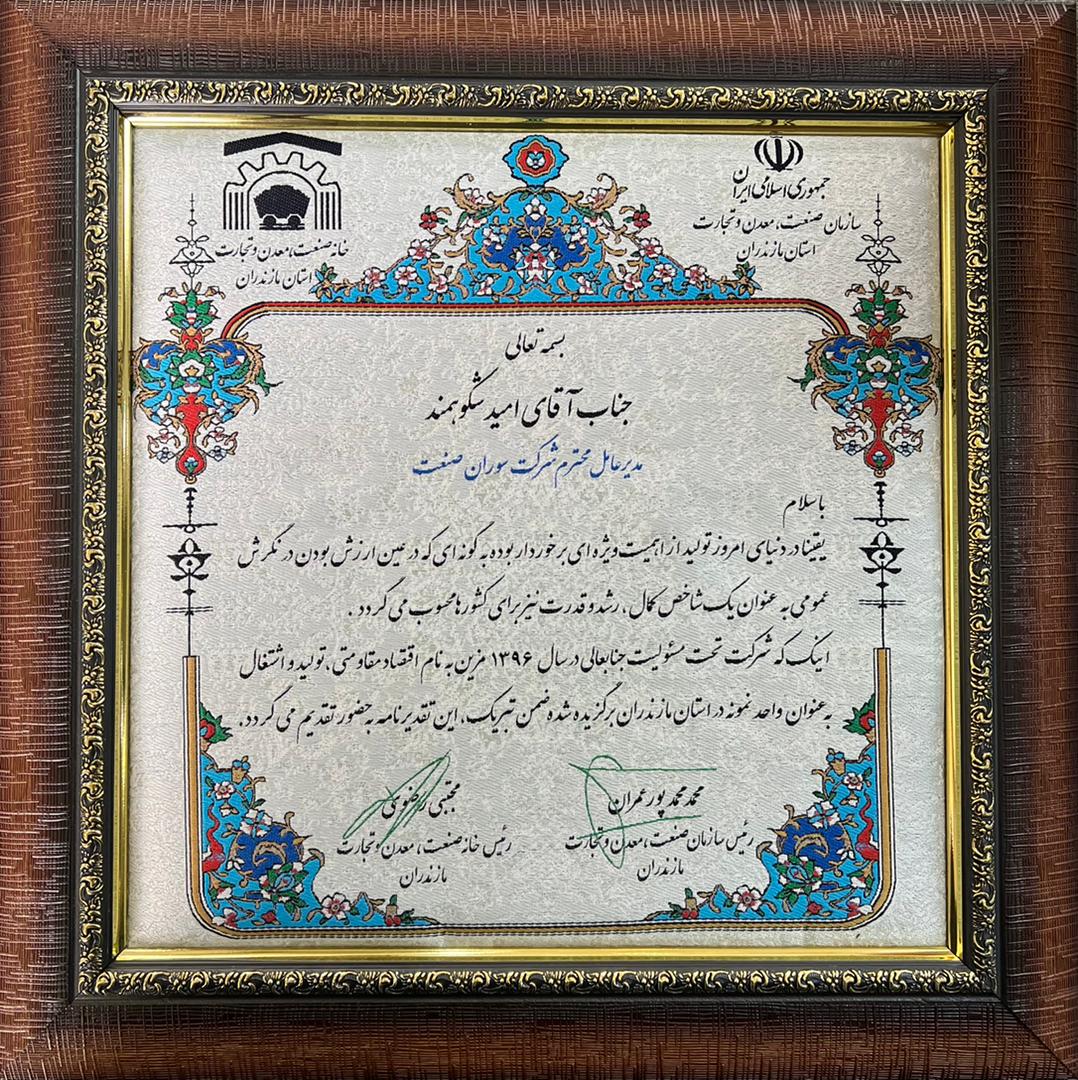 جمهوری اسلامی ایران
سازمان صنعت، معدن و تجارت
استان مازندران
خانه صنعت، معدن و تجارت
استان مازندران
بسمه تعالی
جناب آقای امید شکوهمند
مدیر عامل محترم شرکت سوران صنعت
با سلام
یقینا در دنیای امروز تولید از اهمیت ویژه ای برخوردار بوده به گونه ای که در عین ارزش بودن در نگرش
عمومی به عنوان یک شاخص کمال ، رشد و قدرت نیز برای کشورها محسوب می گردد .
اینک که شرکت تحت مسئولیت جنابعالی در سال ۱۳۹۶ مزین به نام اقتصاد مقاومتی ، تولید و اشتغال
به عنوان واحد نمونه در استان مازندران برگزیده شده ضمن تبریک، این تقدیرنامه به حضور تقدیم می گردد.
محمد محمدپور عمران
رئیس سازمان صنعت، معدن و تجارت
مازندران
مجتبی رضوی
رئیس خانه صنعت، معدن و تجارت
مازندران